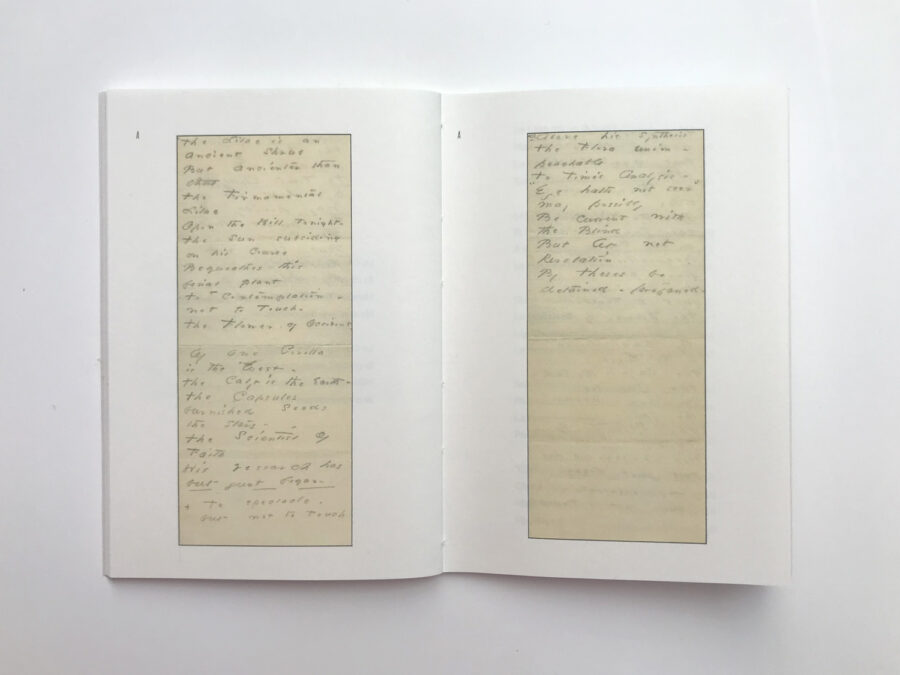 A
The Lilac is an
Ancient Shrub
But Ancienter than
that
The Firmamental
Lilac
Opon the Hill Tonight -
The Sun subsiding
on his Course
Bequeathes this
final plant
to Contemplation -
not to Touch -
The Flower of Occident
Of one Corolla
is the West -
The Calyx is the Earth -
The Capsules
burnished Seeds
the Stars -
The Scientist of
Faith
His research has
but just begun -
+ To spectacle -
but not to Touch
A
Above his Synthesis
The Flora unim -
peachable
To Time's Analysis -
"Eye hath not seen"
may possibly
Be current with
the Blind
But let not
Revelation
By theses be
detained - profaned -